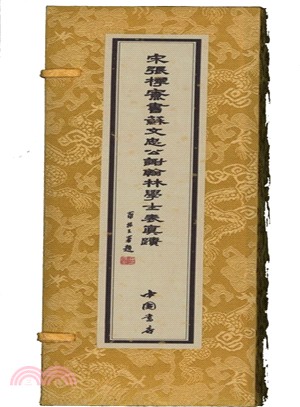 宋張樗寮書蘇文忠公謝翰林學士表真蹟
中國書店